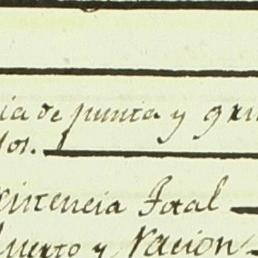 ia de punta y gru
los.
xistencia Total
uerto y Nacion